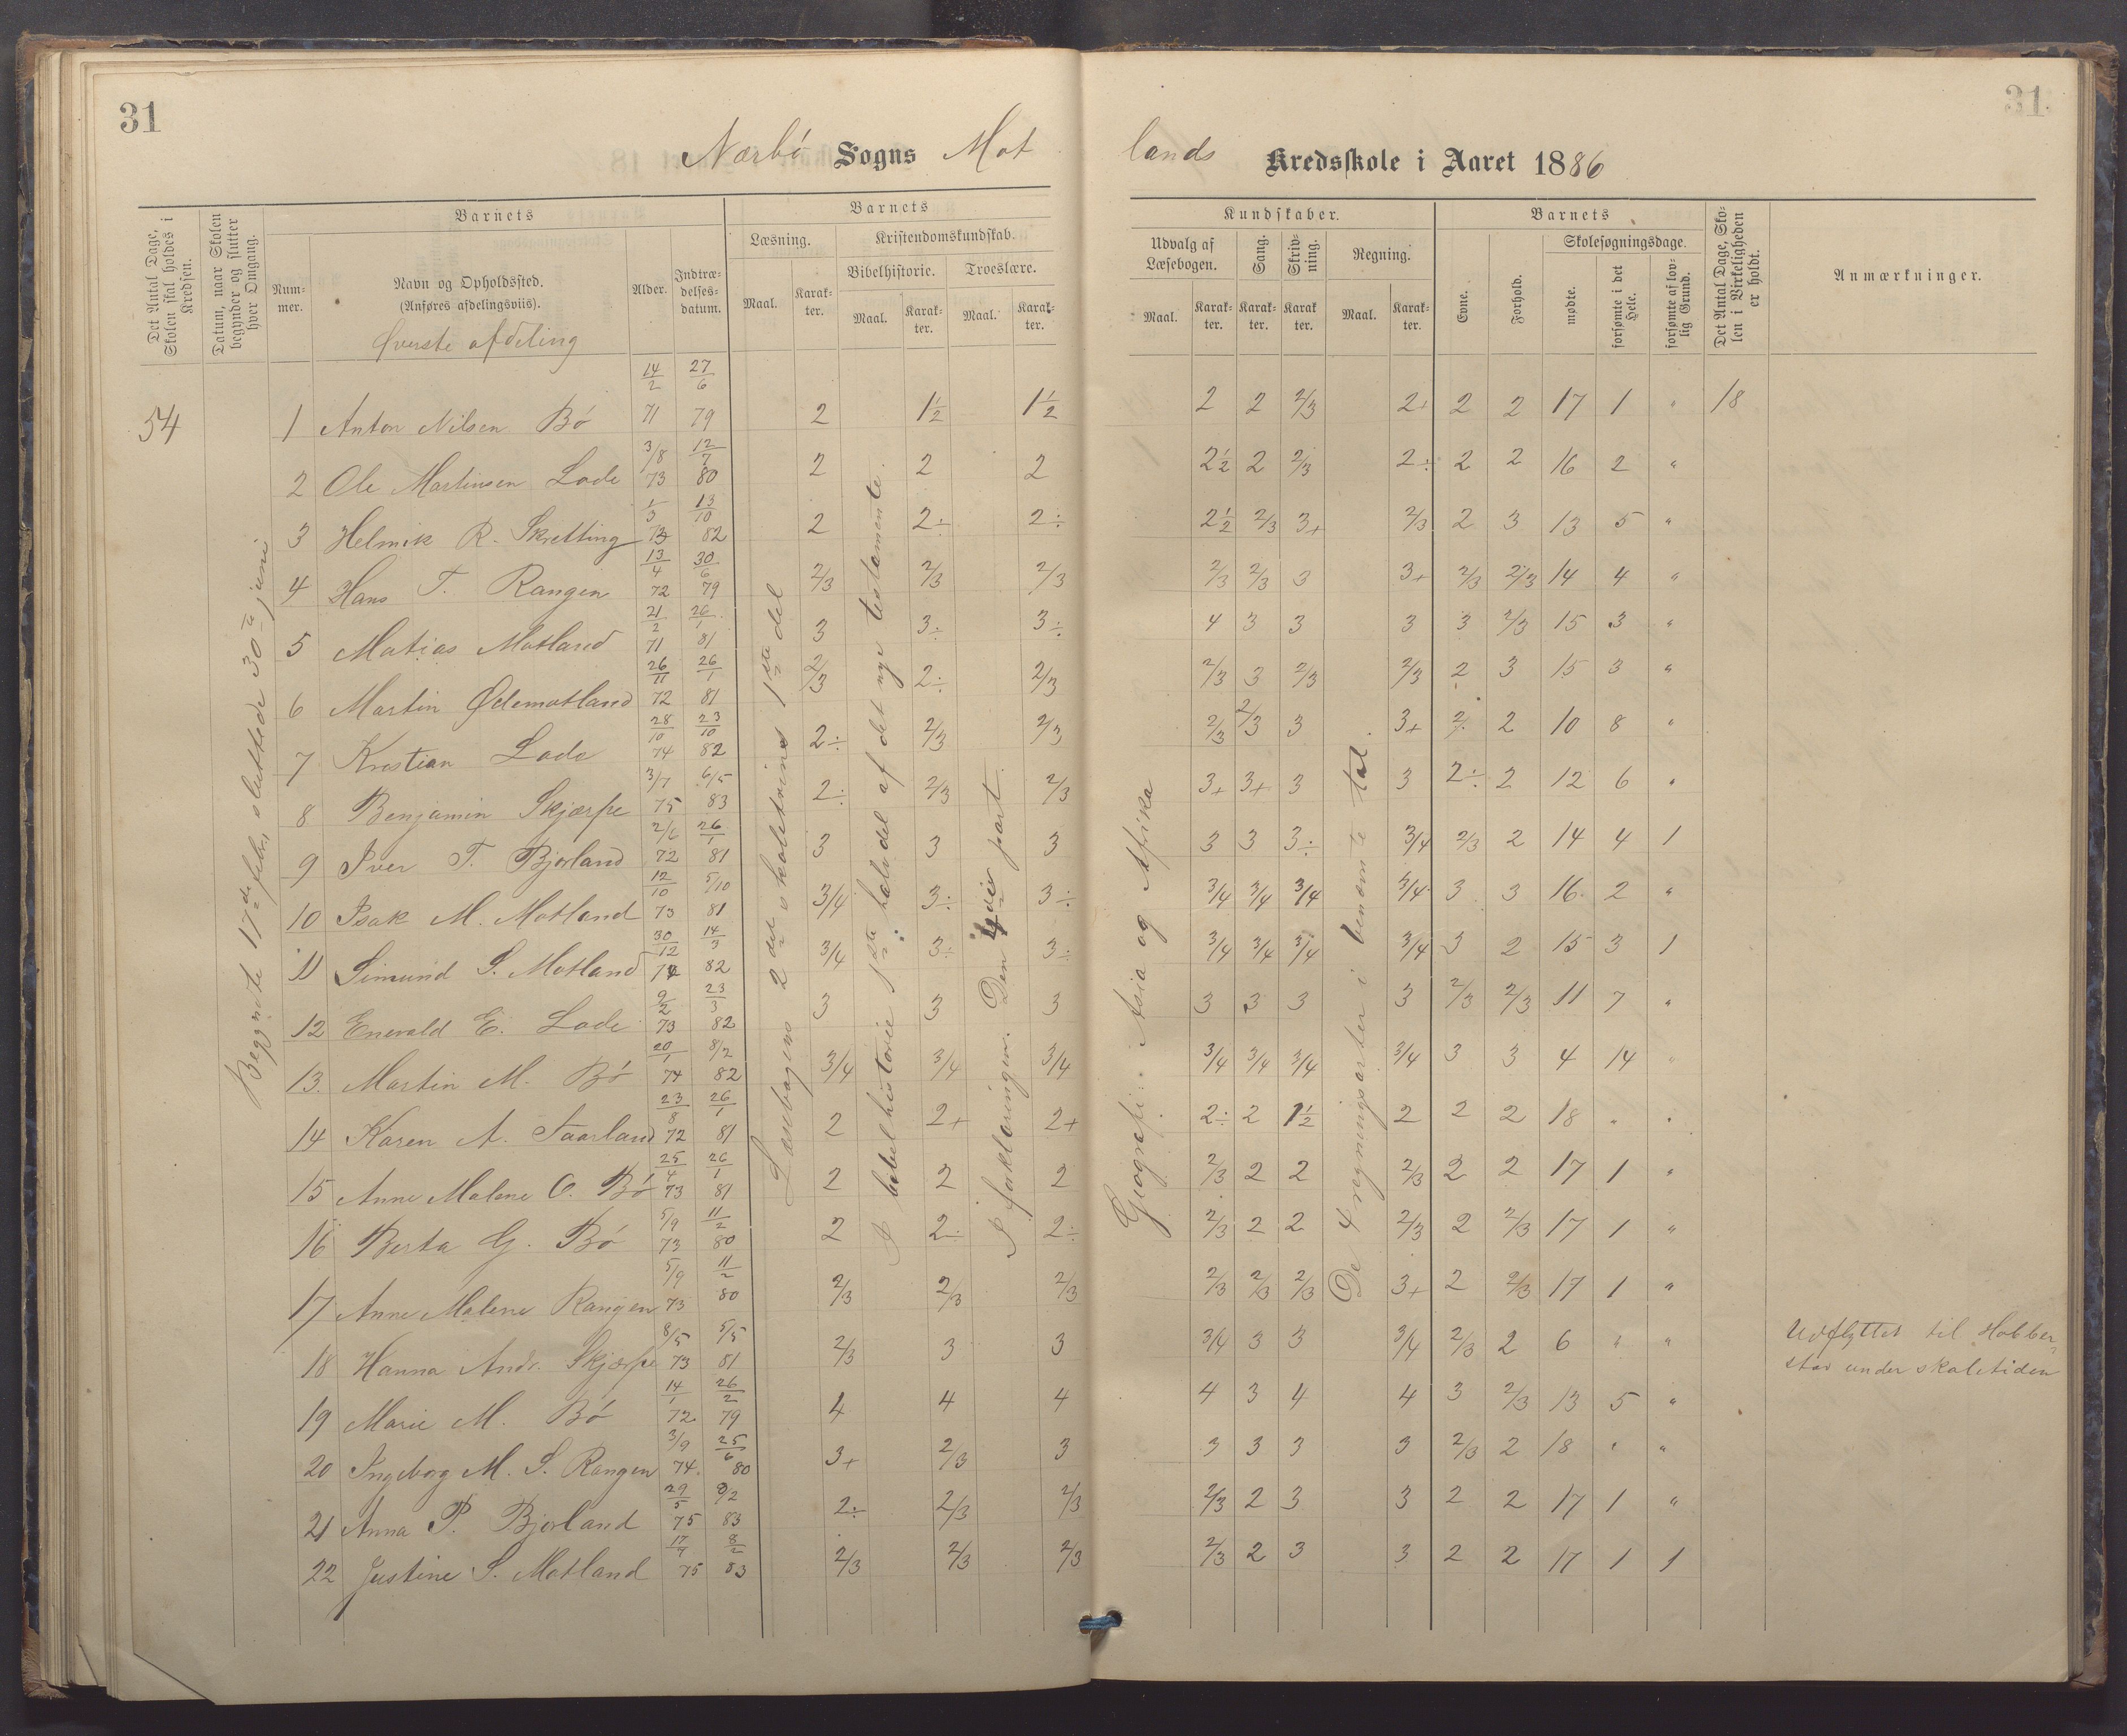 31
31.
Nærbø Sogns Mot
lands Kredsskole i Aaret 1886
Det Antal Dage, Skolen skal holdes i Kredsen.
Datum, naar Skolen begynder og slutter hver Omgang.
Barnets
Num-
mer.
Navn og Opholdssted.
(Anføres afdelingsviis).
Alder.
Indtræ-
delses-
datum.
Barnets
Læsning.
Kristendomskundskab.
Bibelhistorie.
Troeslære.
Maal. Karak-
ter.
Maal. Karak-
ter.
Maal. Karak-
ter.
Kundskaber.
Udvalg af
Læsebogen.
Sang.
Skriv-
ning.
Regning.
Maal. Karak-
ter. Karak-
ter. Karak
ter. Maal. Karak-
ter.
Barnets
Evne.
Forhold.
Skolesøgningsdage.
mødte.
forsømte i det Hele.
forsømte af lov-
lig Grund.
Det Antal Dage, Sko-
len i Virkeligheden
er holdt.
Anmærkninger.
Øverste afdeling
54
Begynte 17de febr, sluttede 30te juni
Læsebogens 2det skoletrins 1ste del
I bibelhistorie 1ste halvdel af det nye testamente.
I forklaringen. Den 4die part.
Geografi: Asia og Afrika
De 4 regningsarter i benævnte tal.
1 Anton Nilsen Bø 14/2 71 27/6 79 2 1½ 1½ 2 2 2/3 2+ 2 2 17 1 " 18
2 Ole Martinsen Lode 3/8 73 12/7 80 2 2 2 2½ 2 2/3 2÷ 2 2 16 2 "
3 Helmik R. Skretting 1/3 73 13/10 82 2 2÷ 2÷ 2½ 2/3 3+ 2/3 2 3 13 5 "
4 Hans T. Rangen 13/4 72 30/6 79 2/3 2/3 2/3 2/3 2/3 3 3+ 2/3 2/3 14 4 "
5 Matias Motland 21/2 71 26/1 81 3 3÷ 3÷ 4 3 3 3 3 2/3 15 3 "
6 Martin Ødemotland 26/11 72 26/1 81 2/3 2÷ 2/3 2/3 3 2/3 2/3 2 3 15 3 "
7 Kristian Lode 28/10 74 23/10 82 2÷ 2/3 2/3 2/3 2/3 3 3+ 2 2 10 8 "
8 Benjamin Skjærpe 3/7 75 6/5 83 2÷ 2/3 2/3 3+ 3+ 3 3 2÷ 2 12 6 "
9 Iver T. Bjorland 2/6 72 26/1 81 3 3 3 3 3 3÷ 3/4 2/3 2 14 4 1
10 Isak M. Motland 12/10 73 5/10 81 3/4 3÷ 3÷ 3/4 3/4 3/4 3/4 3 3 16 2 "
11 Simund S. Motland 30/12 74 14/3 82 3/4 3÷ 3÷ 3/4 3/4 3/4 3/4 3 2 15 3 1
12 Enevald E. Lode 2/2 73 23/3 82 3 3 3 3 3 3 3 2/3 2/3 11 7 "
13. Martin M. Bø 20/1 74 8/2 82 3/4 3/4 3/4 3/4 3/4 3/4 3/4 3 3 4 14 "
14 Karen A. Taarland 23/8 72 26/1 81 2 2+ 2+ 2÷ 2 1½ 2 2 2 18 " "
15 Anne Malene O. Bø 25/4 73 26/1 81 2 2 2 2/3 2 2 2/3 2 2 17 1 "
16 Berta G. Bø 5/9 73 11/2 80 2 2÷ 2÷ 2/3 2 2 2/3 2 2/3 17 1 "
17 Anne Malene Rangen 5/9 73 11/2 80 2/3 2/3 2/3 2/3 2/3 2/3 3+ 2 2/3 17 1 "
18 Hanna Andr. Skjærpe 8/5 73 5/5 81 2/3 3 3 3/4 3 3 3/4 2/3 2 6 " " Udflyttet til Hobber-
stad under skoletiden
19 Marie M. Bø 14/1 72 26/2 79 4 4 4 4 3 4 4 3 2/3 13 5 "
20 Ingeborg M. S. Rangen 3/9 74 25/6 80 3+ 2/3 3 3 3 3 3 2/3 2 18 " "
21 Anna P. Bjorland 29/5 75 8/2 83 2÷ 2/3 2/3 2/3 2 3 3 2 2 17 1 "
22 Justine S. Motland 17/9 75 8/2 83 2/3 2/3 2/3 2/3 2 3 3 2 2 17 1 1